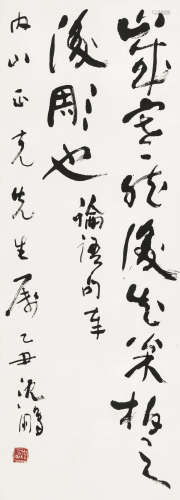 歲寒然後知松柏之
後彫也
論語句 奉
内山正堯先生屬 乙丑 沈鵬